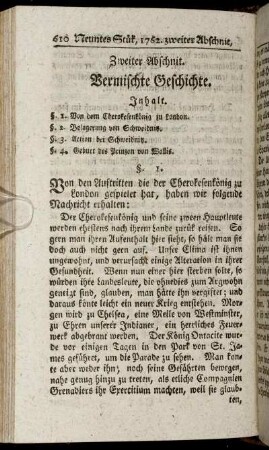 610 Neuntes Stük, 1762. zweiter Abschnit,
Zweiter Abschnit.
Vermischte Geschichte.
Inhalt.
§. 1. Von dem Cherokesenkönig zu London.
§. 2. Belagerung von Schweidnitz.
§. 3. Action bei Schweidnitz.
§. 4. Geburt des Prinzen von Wallis.
§. 1.
Von den Auftritten die der Cherokesenkönig zu
London gespielet hat, haben wir folgende
Nachricht erhalten:
Der Cherokesenkönig und seine zween Hauptleute
werden ehestens nach ihrem Lande zurük reisen. So
gern man ihren Aufenthalt hier sieht, so hält man sie
doch auch nicht gern auf. Unser Clima ist ihnen
ungewohnt, und verursacht einige Alteration in ihrer
Gesundheit. Wenn nun einer hier sterben sollte, so
würden ihre Landsleute, die ohnedies zum Argwohn
geneigt sind, glauben, man hätte ihn vergiftet; und
daraus könte leicht ein neuer Krieg entstehen. Mor-
gen wird zu Chelsea, eine Meile von Westminster,
zu Ehren unserer Indianer, ein herrliches Feuer-
werk abgebrant werden. Der König Ontacite wur-
de vor einigen Tagen in den Park von St. Ja-
mes geführet, um die Parade zu sehen. Man kon-
te aber weder ihn, noch seine Gefährten bewegen,
nahe genug hinzu zu treten, als etliche Compagnien
Grenadiers ihr Exercitium machten, weil sie glaub-
ten,